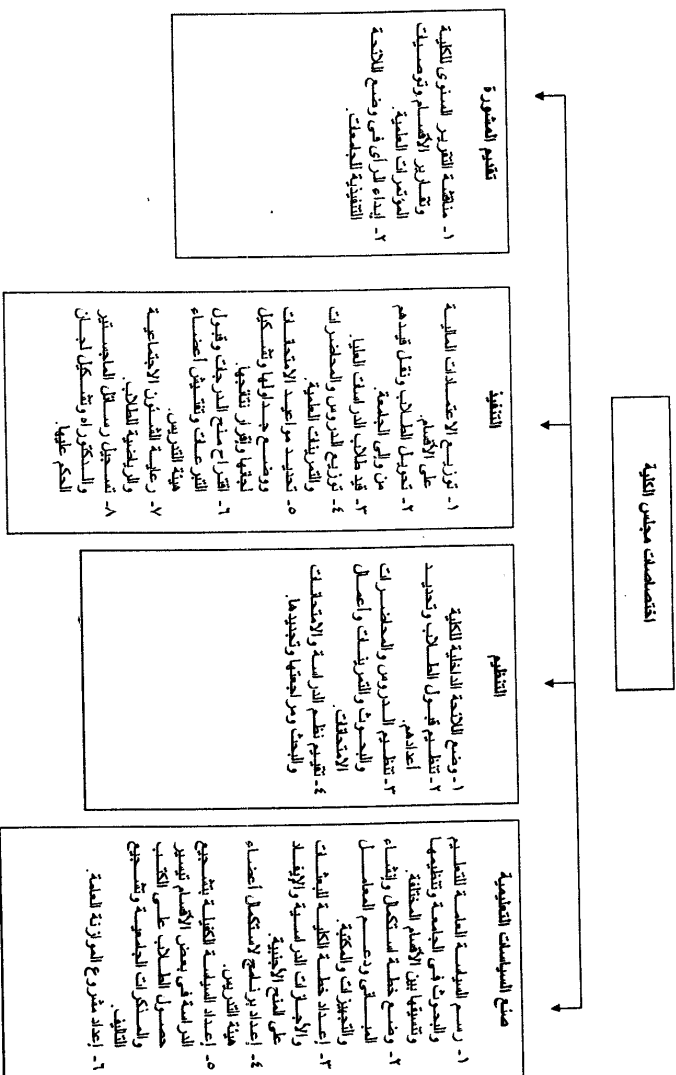 اختصاصات مجلس الكلية
صنع السياسات التعليمية
١- رسم السياسة العامة للتعليم
والبحوث فى الجامعة وتنظيمها
وتنسيقها بين الأقسام المختلفة.
٢- وضع خطة استكمال وإنشاء
المبانى ودعم المعامل
والتجهيزات والمكتبة.
٣- إعداد خطة الكلية للبعثات
والأجازات الدراسية والإيفاد
على المنح الأجنبية.
٤- إعداد برنامج لاستكمال أعضاء
هيئة التدريس.
٥- إعداد السياسة الكفيلة بتشجيع
الدراسة فى بعض الأقسام تيسير
حصول الطلاب على الكتب
والمذكرات الجامعية وتشجيع
التأليف.
٦- إعداد مشروع الموازنة العامة.
التنظيم
١- وضع اللائحة الداخلية للكلية
٢- تنظيم قبول الطلاب وتحديد
أعدادهم.
٣- تنظيم الدروس والمحاضرات
والبحوث والتمرينات وأعمال
الامتحانات.
٤- تقييم نظم الدراسة والامتحانات
والبحث ومراجعتها وتجديدها.
التنفيذ
١- توزيع الاعتمادات المالية
على الأقسام.
٢- تحويل الطلاب ونقل قيدهم
من وإلى الجامعة.
٣- قيد طلاب الدراسات العليا.
٤- توزيع الدروس والمحاضرات
والتمرينات العلمية.
٥- تحديد مواعيد الامتحانات
ووضع جداولها وتشكيل
لجانها وإقرار نتائجها.
٦- اقتراح منح الدرجات وقبول
التبرعات وتفتيش أعضاء
هيئة التدريس.
٧- رعاية الشئون الاجتماعية
والرياضية للطلاب.
٨- تسجيل رسائل الماجستير
والدكتوراه وتشكيل لجان
الحكم عليها.
تقديم المشورة
١- مناقشة التقرير السنوى للكلية
وتقارير الأقسام وتوصيات
المؤتمرات العلمية.
٢- إبداء الرأى فى وضع اللائحة
التنفيذية للجامعات.